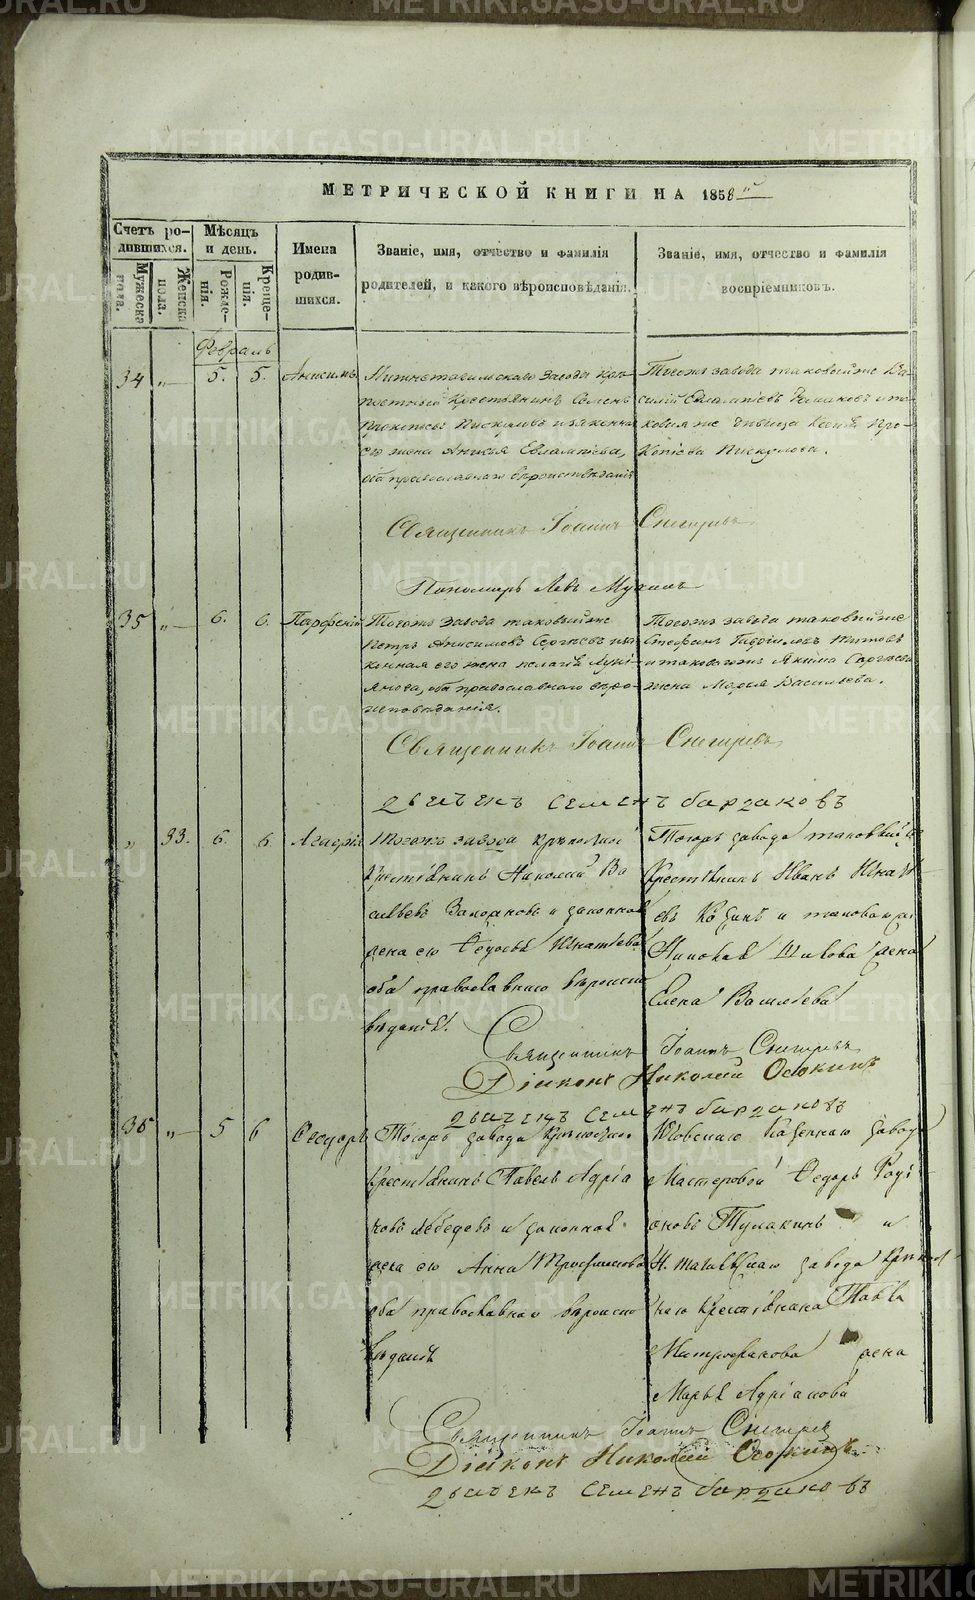 МЕТРИЧЕСКОЙ КНИГИ НА 1858й
Счетъ ро-
дившихся.
Мѣсяцъ
и день.
Имена
родив-
шихся.
Званіе, имя, отчество и фамилія
родителей, и какого вѣроисповѣданія.
Званіе, имя, отчество и фамилія
воспріемниковъ.
Мужеска
пола.
Женска
пола.
Рожде-
нія.
Креще-
нія.
Февраль
34 " 5. 5. Анисимъ
Нижнетагильскаго завода крѣ-
постный крестьянинъ Семенъ
Прокопьевъ Пискуновъ и законная
его жена Евлампіева,
оба православнаго вѣроисповѣданія
Тогожъ завода таковый же Ва-
силій Евлампіевъ и та-
ковая же дѣвица Про-
копіева Пискунова.
Священникъ Іоаннъ Снегиревъ
Пономарь Левъ Мухинъ
35 " 6. 6. Парфеній
Тогожъ завода таковый же
Петръ Анисимовъ Сергѣевъ и за-
конная его жена Пелагія Луки-
янова, оба православнаго вѣро-
исповѣданія.
Тогожъ завода таковый же
Стефанъ Гавриловъ Титовъ
и таковогожъ Якима Сергѣева
жена Марья Васильева.
Священникъ Іоаннъ Снегиревъ
дьячекъ Семенъ бардаковъ
" 33. 6. 6 Агафія
Тогожъ завода крѣпостной
Крестьянинъ Николай Ва
сильевъ и законная
жена его Федосья Игнатьева
оба православнаго вѣроиспо
вѣданія.
Тогожъ завода таковый же
Крестьянинъ Иванъ Игнать
евъ Козинъ и таковаго же
Николая Шилова жена
Елена Васильева
Священникъ Іоаннъ Снегиревъ
Діаконъ Николай Осокинъ
дьячекъ Семенъ бардаковъ
36 " 5 6 Феодоръ
Тогожъ завода крѣпостной
Крестьянинъ Павелъ Адріа
новъ Лебедевъ и законная
жена его Анна Трофимова
оба православнаго вѣроиспо
вѣданія
Юговскаго Казеннаго завода
Мастеровой Федоръ Роді
оновъ Тумакинъ и
Н. Тагильскаго завода крѣпост
наго Крестьянина Павла
Митрофанова жена
Марья Адріанова
Священникъ Іоаннъ Снегирев
Діаконъ Николай Осокинъ
дьячекъ Семенъ бардаковъ
METRIKI.GASO-URAL.RU